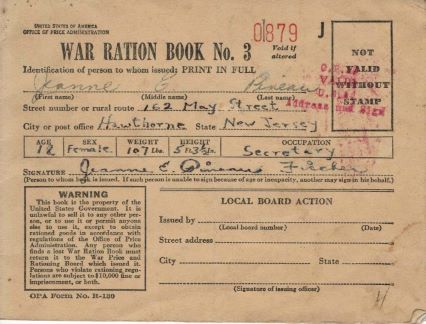 UNITED STATES OF AMERICA
OFFICE OF PRICE ADMINISTRATION
0879 J
WAR RATION BOOK No. 3
Void if
altered
NOT
VALID
WITHOUT
STAMP
Identification of person to whom issued: PRINT IN FULL
Jeanne E Pineau
(First name) (Middle name) (Last name)
Street number or rural route 162 May Street
City or post office Hawthorne State New Jersey
AGE SEX WEIGHT HEIGHT OCCUPATION
18 Female 107 Lbs. 5 Ft. 3½ In. Secretary
SIGNATURE Jeanne E Pineau
(Person to whom book is issued. If such person is unable to sign because of age or incapacity, another may sign in his behalf.)
WARNING
This book is the property of the
United States Government. It is
unlawful to sell it to any other per-
son, or to use it or permit anyone
else to use it, except to obtain
rationed goods in accordance with
regulations of the Office of Price
Administration. Any person who
finds a lost War Ration Book must
return it to the War Price and
Rationing Board which issued it.
Persons who violate rationing regu-
lations are subject to $10,000 fine or
imprisonment, or both.
LOCAL BOARD ACTION
Issued by
(Local board number) (Date)
Street address
City State
(Signature of issuing officer)
OPA Form No. R-130